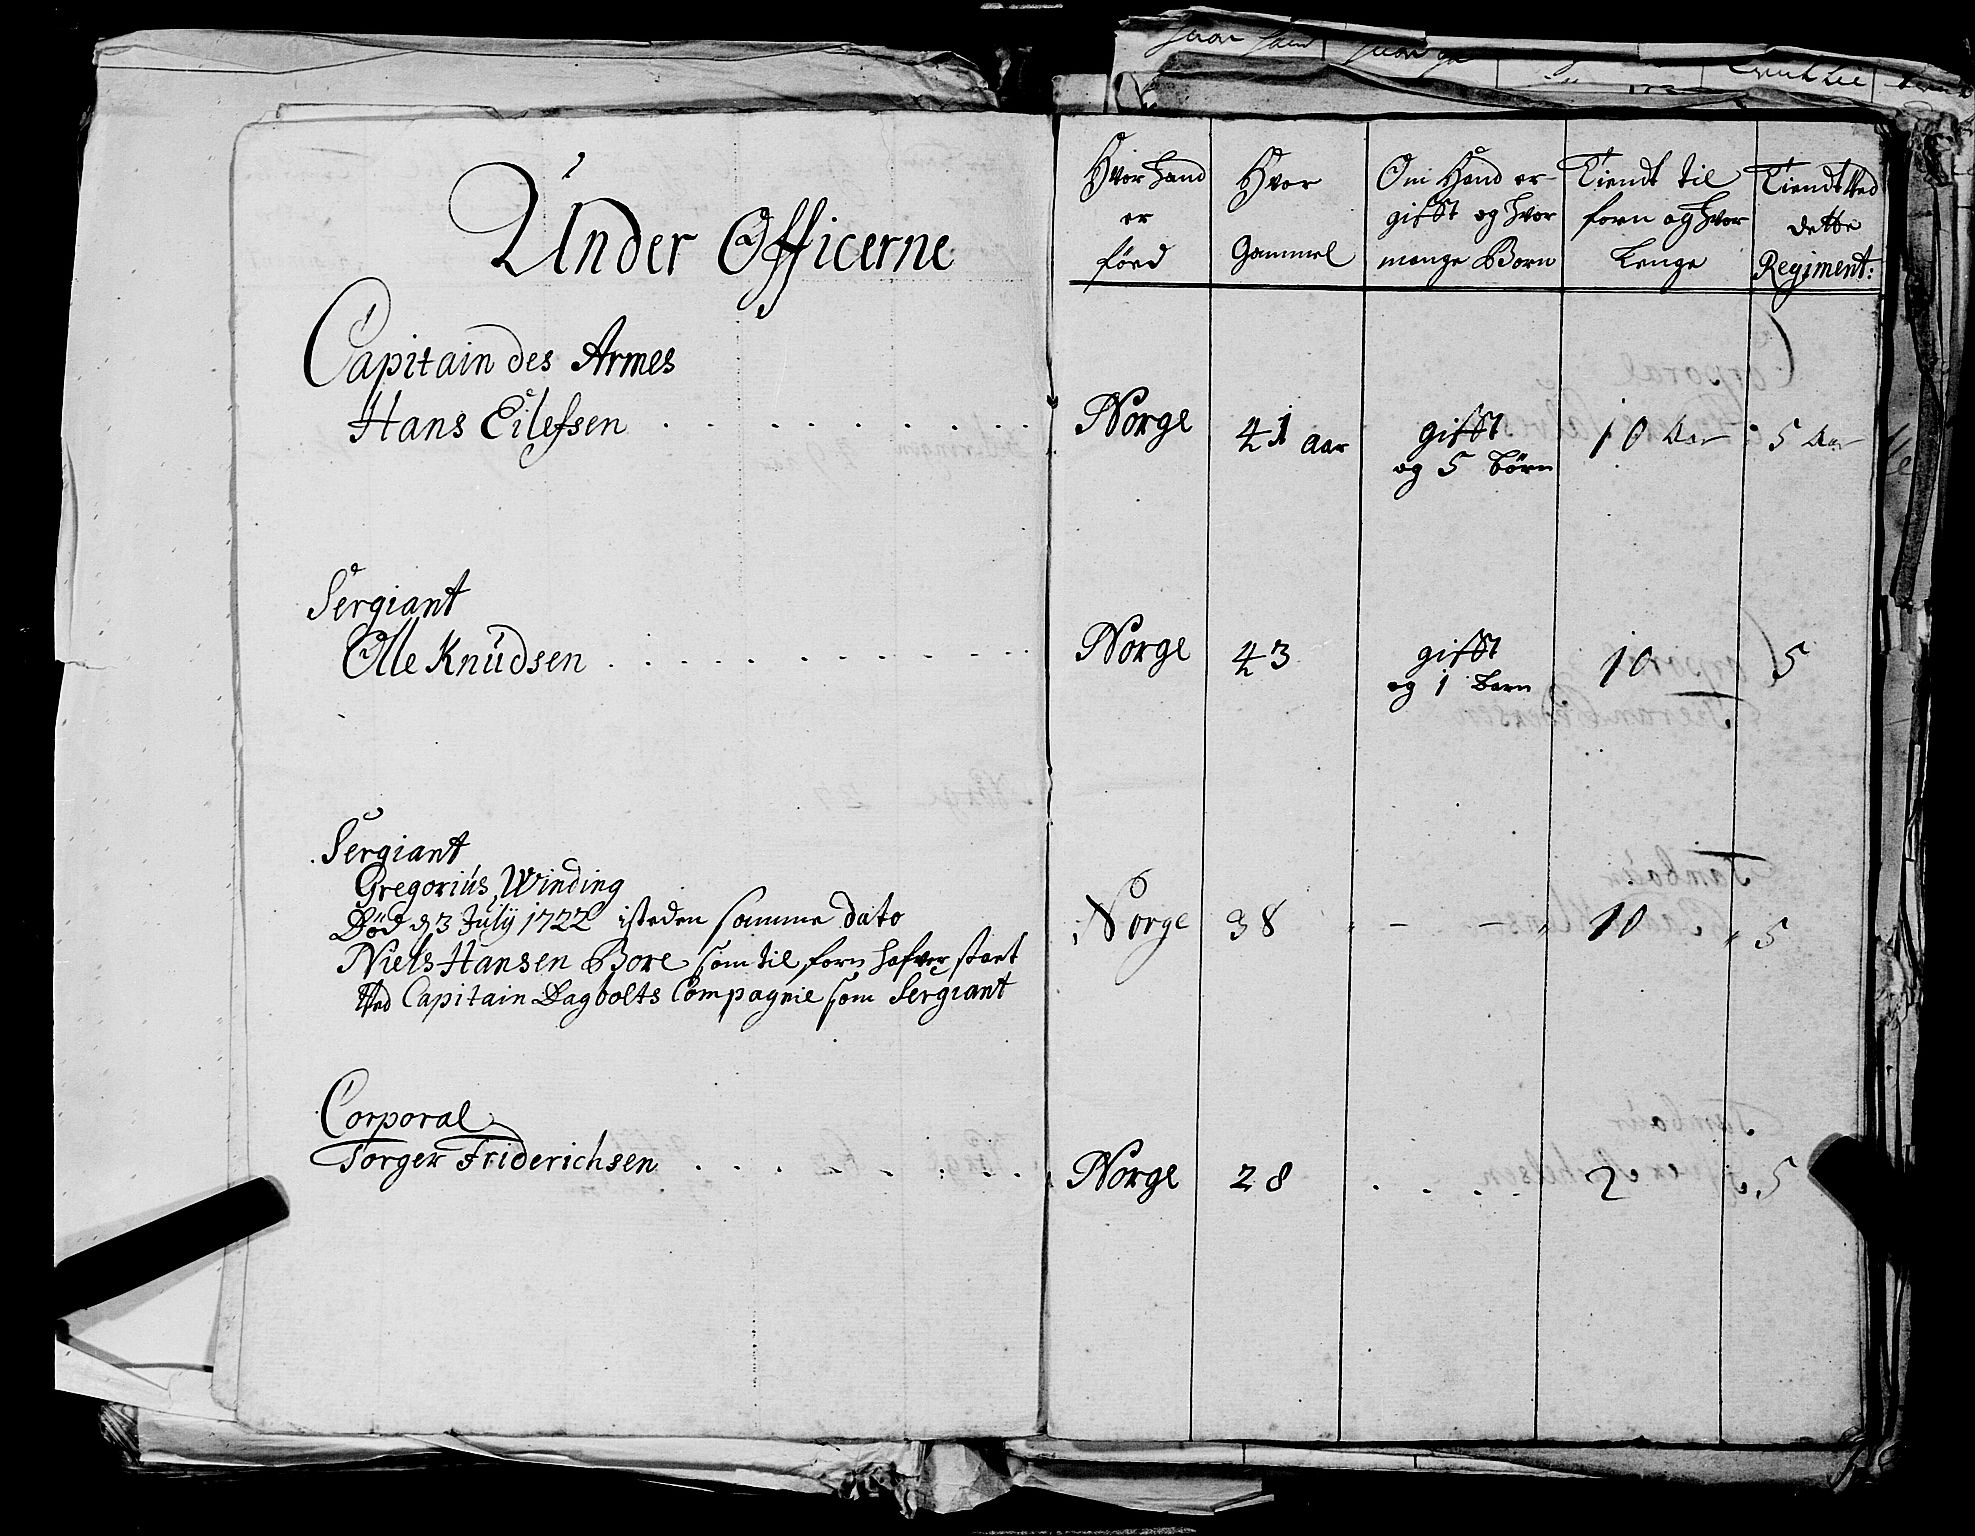 Under Officerne
Capitain des Armes
Hans Eilefsen . . . . . . . . . .
Sergiant
Olle Knudsen . . . . . . . . . . . .
Sergiant
Gregorius Winding
Död d 3 Julij 1722 isteden samme dato
Niels Hansen Bore som til forn hafver staaet
Ved Capitain Dagbolts Compagnie som Sergiant
Corporal
Torger Friderichsen . . . . . . . . .
Hvor hand er föed
Hvor Gammel
Om Hand er gifft og hvor mange Born
Tiendt til forn og hvor Lenge
Tiendt Ved dette Regiment:
Norge 41 aar gifft og 5 börn 10 Aar 5 Aar
Norge 43 gifft og 1 barn 10 5
Norge 38 " - - " 10 " 5
Norge 28 . . . . 2 5